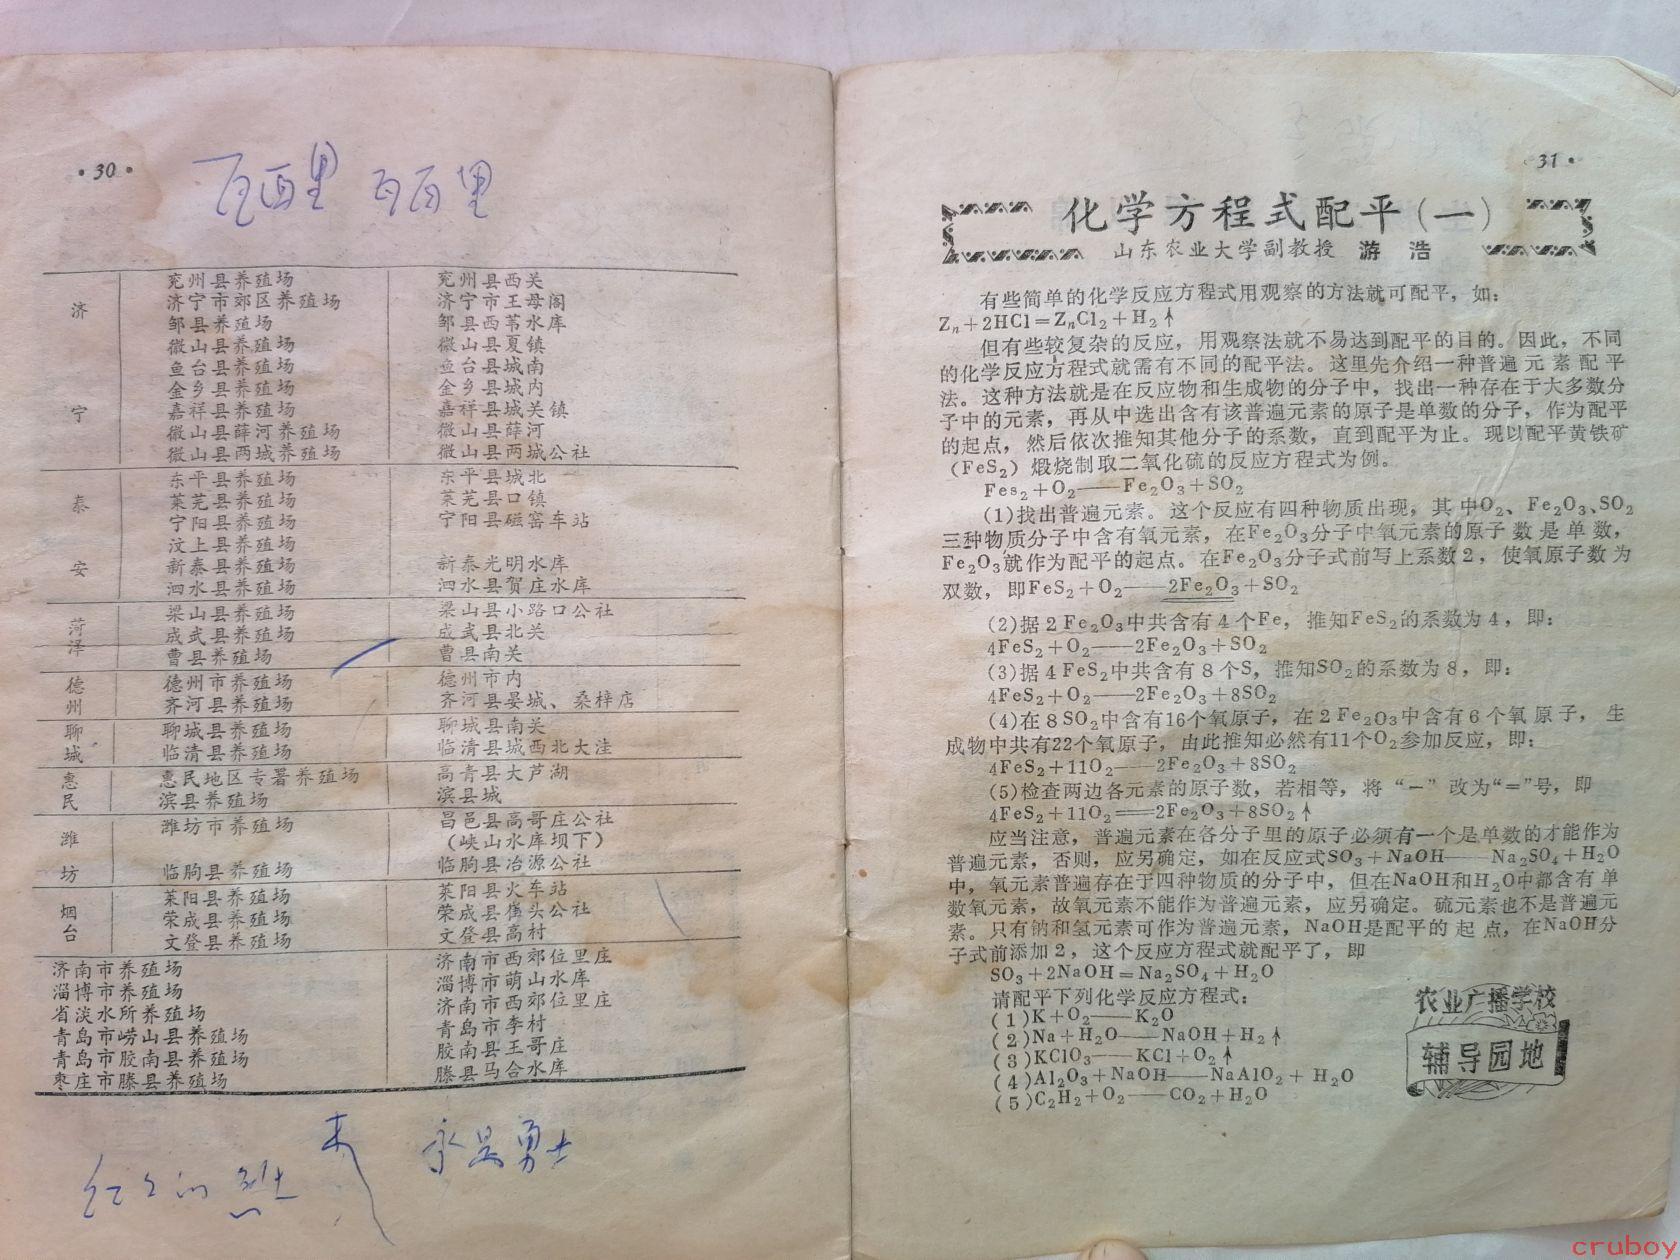 ·30·
瓦西里 瓦西里
济宁
兖州县养殖场 兖州县西关
济宁市郊区养殖场 济宁市王母阁
邹县养殖场 邹县西苇水库
微山县养殖场 微山县夏镇
鱼台县养殖场 鱼台县城南
金乡县养殖场 金乡县城内
嘉祥县养殖场 嘉祥县城关镇
微山县薛河养殖场 微山县薛河
微山县两城养殖场 微山县两城公社
泰安
东平县养殖场 东平县城北
莱芜县养殖场 莱芜县口镇
宁阳县养殖场 宁阳县磁窑车站
汶上县养殖场
新泰县养殖场 新泰光明水库
泗水县养殖场 泗水县贺庄水库
菏泽
梁山县养殖场 梁山县小路口公社
成武县养殖场 成武县北关
曹县养殖场 曹县南关
德州
德州市养殖场 德州市内
齐河县养殖场 齐河县晏城、桑梓店
聊城
聊城县养殖场 聊城县南关
临清县养殖场 临清县城西北大洼
惠民
惠民地区专署养殖场 高青县大芦湖
滨县养殖场 滨县城
潍坊
潍坊市养殖场 昌邑县高哥庄公社
(峡山水库坝下)
临朐县养殖场 临朐县冶源公社
烟台
莱阳县养殖场 莱阳县火车站
荣成县养殖场 荣成县崖头公社
文登县养殖场 文登县高村
济南市养殖场 济南市西郊位里庄
淄博市养殖场 淄博市萌山水库
省淡水所养殖场 济南市西郊位里庄
青岛市崂山县养殖场 青岛市李村
青岛市胶南县养殖场 胶南县王哥庄
枣庄市滕县养殖场 滕县马合水库
永是勇士
31·
化学方程式配平(一)
山东农业大学副教授 游浩
有些简单的化学反应方程式用观察的方法就可配平，如：
Zn+2HCl=ZnCl₂+H₂↑
但有些较复杂的反应，用观察法就不易达到配平的目的。因此，不同
的化学反应方程式就需有不同的配平法。这里先介绍一种普遍元素配平
法。这种方法就是在反应物和生成物的分子中，找出一种存在于大多数分
子中的元素，再从中选出含有该普遍元素的原子是单数的分子，作为配平
的起点，然后依次推知其他分子的系数，直到配平为止。现以配平黄铁矿
(FeS₂)煅烧制取二氧化硫的反应方程式为例。
Fes₂+O₂——Fe₂O₃+SO₂
(1)找出普遍元素。这个反应有四种物质出现，其中O₂、Fe₂O₃、SO₂
三种物质分子中含有氧元素，在Fe₂O₃分子中氧元素的原子数是单数，
Fe₂O₃就作为配平的起点。在Fe₂O₃分子式前写上系数2，使氧原子数为
双数，即FeS₂+O₂——2Fe₂O₃+SO₂
(2)据2Fe₂O₃中共含有4个Fe，推知FeS₂的系数为4，即：
4FeS₂+O₂——2Fe₂O₃+SO₂
(3)据4FeS₂中共含有8个S，推知SO₂的系数为8，即：
4FeS₂+O₂——2Fe₂O₃+8SO₂
(4)在8SO₂中含有16个氧原子，在2Fe₂O₃中含有6个氧原子，生
成物中共有22个氧原子，由此推知必然有11个O₂参加反应，即：
4FeS₂+11O₂——2Fe₂O₃+8SO₂
(5)检查两边各元素的原子数，若相等，将“—”改为“=”号，即
4FeS₂+11O₂==2Fe₂O₃+8SO₂↑
应当注意，普遍元素在各分子里的原子必须有一个是单数的才能作为
普遍元素，否则，应另确定，如在反应式SO₃+NaOH——Na₂SO₄+H₂O
中，氧元素普遍存在于四种物质的分子中，但在NaOH和H₂O中都含有单
数氧元素，故氧元素不能作为普遍元素，应另确定。硫元素也不是普遍元
素。只有钠和氢元素可作为普遍元素，NaOH是配平的起点，在NaOH分
子式前添加2，这个反应方程式就配平了，即
SO₃+2NaOH=Na₂SO₄+H₂O
请配平下列化学反应方程式：
(1)K+O₂——K₂O
(2)Na+H₂O——NaOH+H₂↑
(3)KClO₃——KCl+O₂↑
(4)Al₂O₃+NaOH——NaAlO₂+H₂O
(5)C₂H₂+O₂——CO₂+H₂O
农业广播学校
辅导园地
cruboy